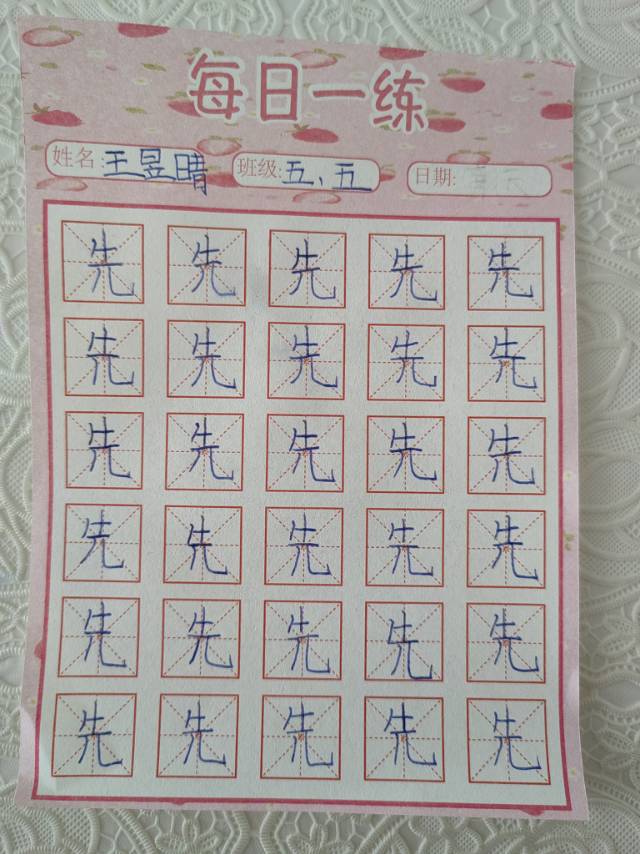 每日一练
姓名:王昱晴 班级:五、五 日期:
先 先 先 先 先
先 先 先 先 先
先 先 先 先 先
先 先 先 先 先
先 先 先 先 先
先 先 先 先 先